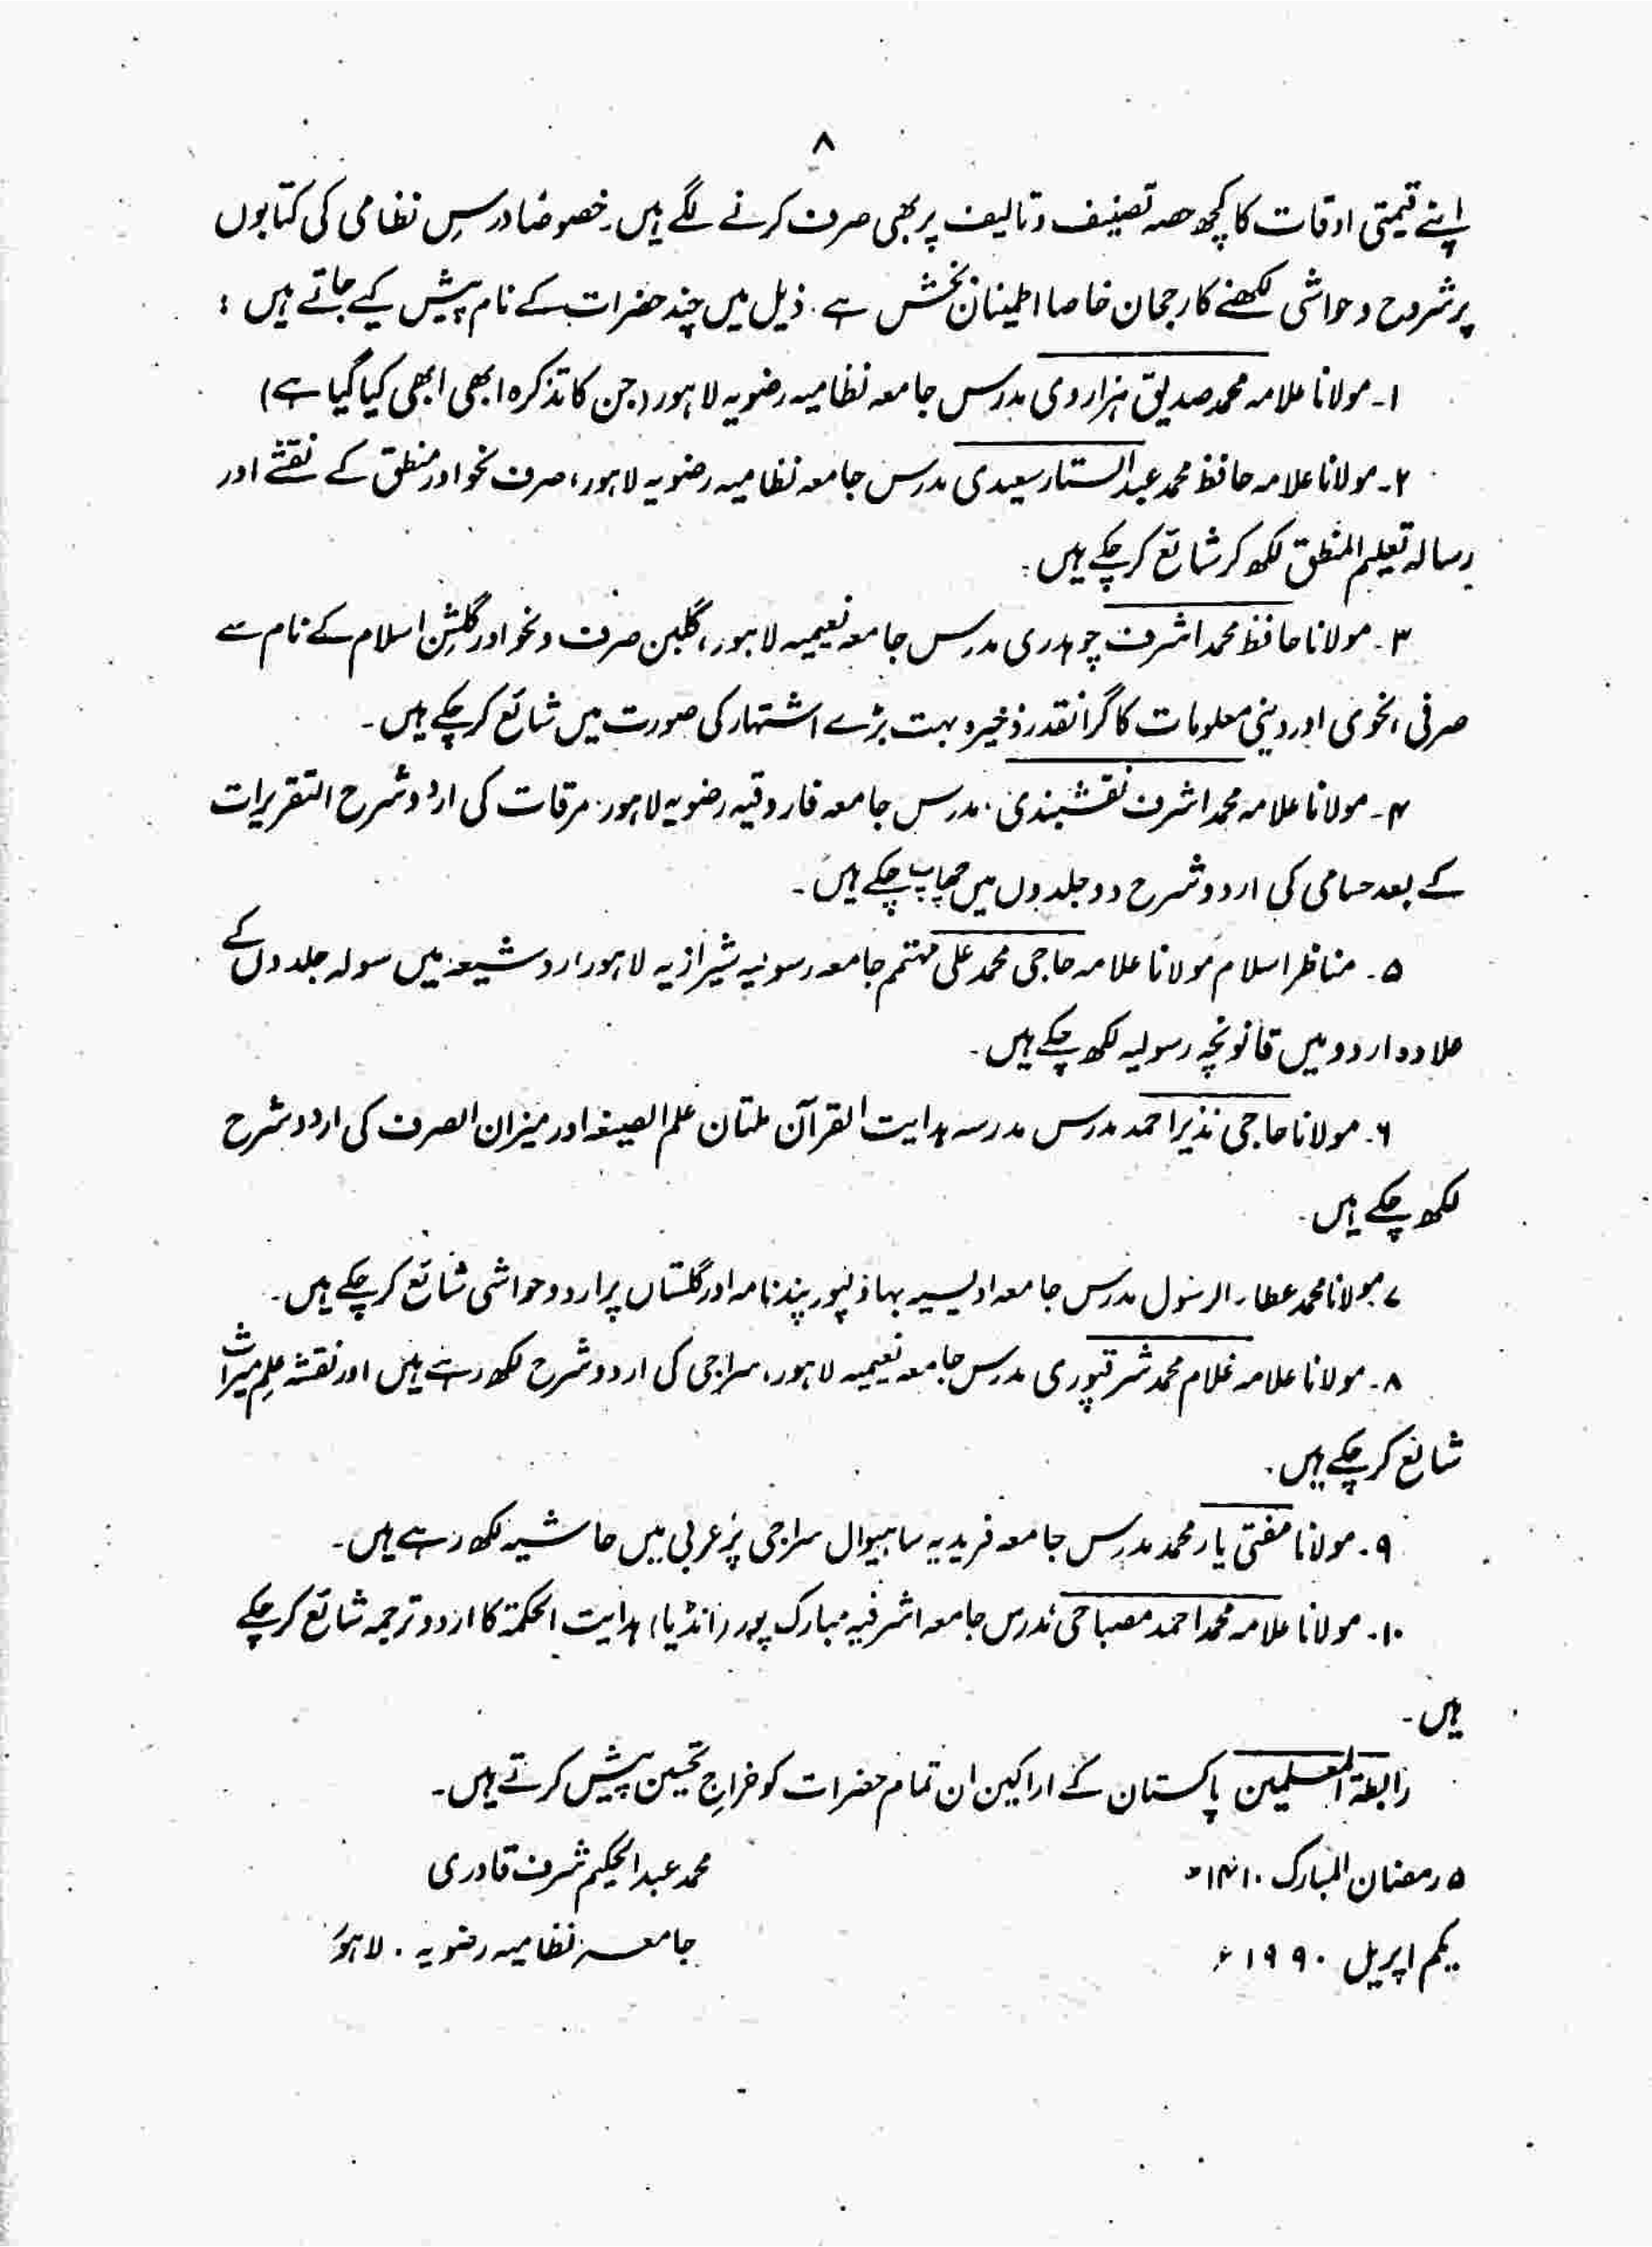 ۸
اپنے قیمتی اوقات کا کچھ حصہ تصنیف و تالیف پر بھی صرف کرنے لگے ہیں۔ خصوصًا درسِ نظامی کی کتابوں
پر شروح و حواشی لکھنے کا رجحان خاصا اطمینان بخش ہے۔ ذیل میں چند حضرات کے نام پیش کیے جاتے ہیں:
۱۔ مولانا علامہ محمد صدیق ہزاروی مدرس جامعہ نظامیہ رضویہ لاہور (جن کا تذکرہ ابھی ابھی کیا گیا ہے)
۲۔ مولانا علامہ حافظ محمد عبدالستار سعیدی مدرس جامعہ نظامیہ رضویہ لاہور، صرف نحو اور منطق کے نقشے اور
رسالہ تعلیم المنطق لکھ کر شائع کر چکے ہیں۔
۳۔ مولانا حافظ محمد اشرف چوہدری مدرس جامعہ نعیمیہ لاہور، گلبن صرف و نحو اور گلشنِ اسلام کے نام سے
صرفی، نحوی اور دینی معلومات کا گرانقدر ذخیرہ بہت بڑے اشتہار کی صورت میں شائع کر چکے ہیں۔
۴۔ مولانا علامہ محمد اشرف نقشبندی، مدرس جامعہ فاروقیہ رضویہ لاہور، مرقات کی اردو شرح التقریرات
کے بعد حسامی کی اردو شرح دو جلدوں میں چھاپ چکے ہیں۔
۵۔ مناظر اسلام مولانا علامہ حاجی محمد علی مہتمم جامعہ رسولیہ شیرازیہ لاہور رد شیعہ میں سولہ جلدوں کے
علاوہ اردو میں قانونچہ رسولیہ لکھ چکے ہیں۔
۶۔ مولانا حاجی نذیر احمد مدرس مدرسہ ہدایت القرآن ملتان علم الصیغہ اور میزان الصرف کی اردو شرح
لکھ چکے ہیں۔
۷۔ مولانا محمد عطاء الرسول مدرس جامعہ اویسیہ بہاولپور پندنامہ اور گلستاں پر اردو حواشی شائع کر چکے ہیں۔
۸۔ مولانا علامہ غلام محمد شرقپوری مدرس جامعہ نعیمیہ لاہور، سراجی کی اردو شرح لکھ رہے ہیں اور نقشہ علمِ میراث
شائع کر چکے ہیں۔
۹۔ مولانا مفتی یار محمد مدرس جامعہ فریدیہ ساہیوال سراجی پر عربی میں حاشیہ لکھ رہے ہیں۔
۱۰۔ مولانا علامہ محمد احمد مصباحی مدرس جامعہ اشرفیہ مبارک پور (انڈیا) ہدایت الحکمۃ کا اردو ترجمہ شائع کر چکے
ہیں۔
رابطۃ المعلمین پاکستان کے اراکین ان تمام حضرات کو خراجِ تحسین پیش کرتے ہیں۔
۵ رمضان المبارک ۱۴۱۰ھ
محمد عبدالحکیم شرف قادری
یکم اپریل ۱۹۹۰ء
جامعہ نظامیہ رضویہ۔ لاہور